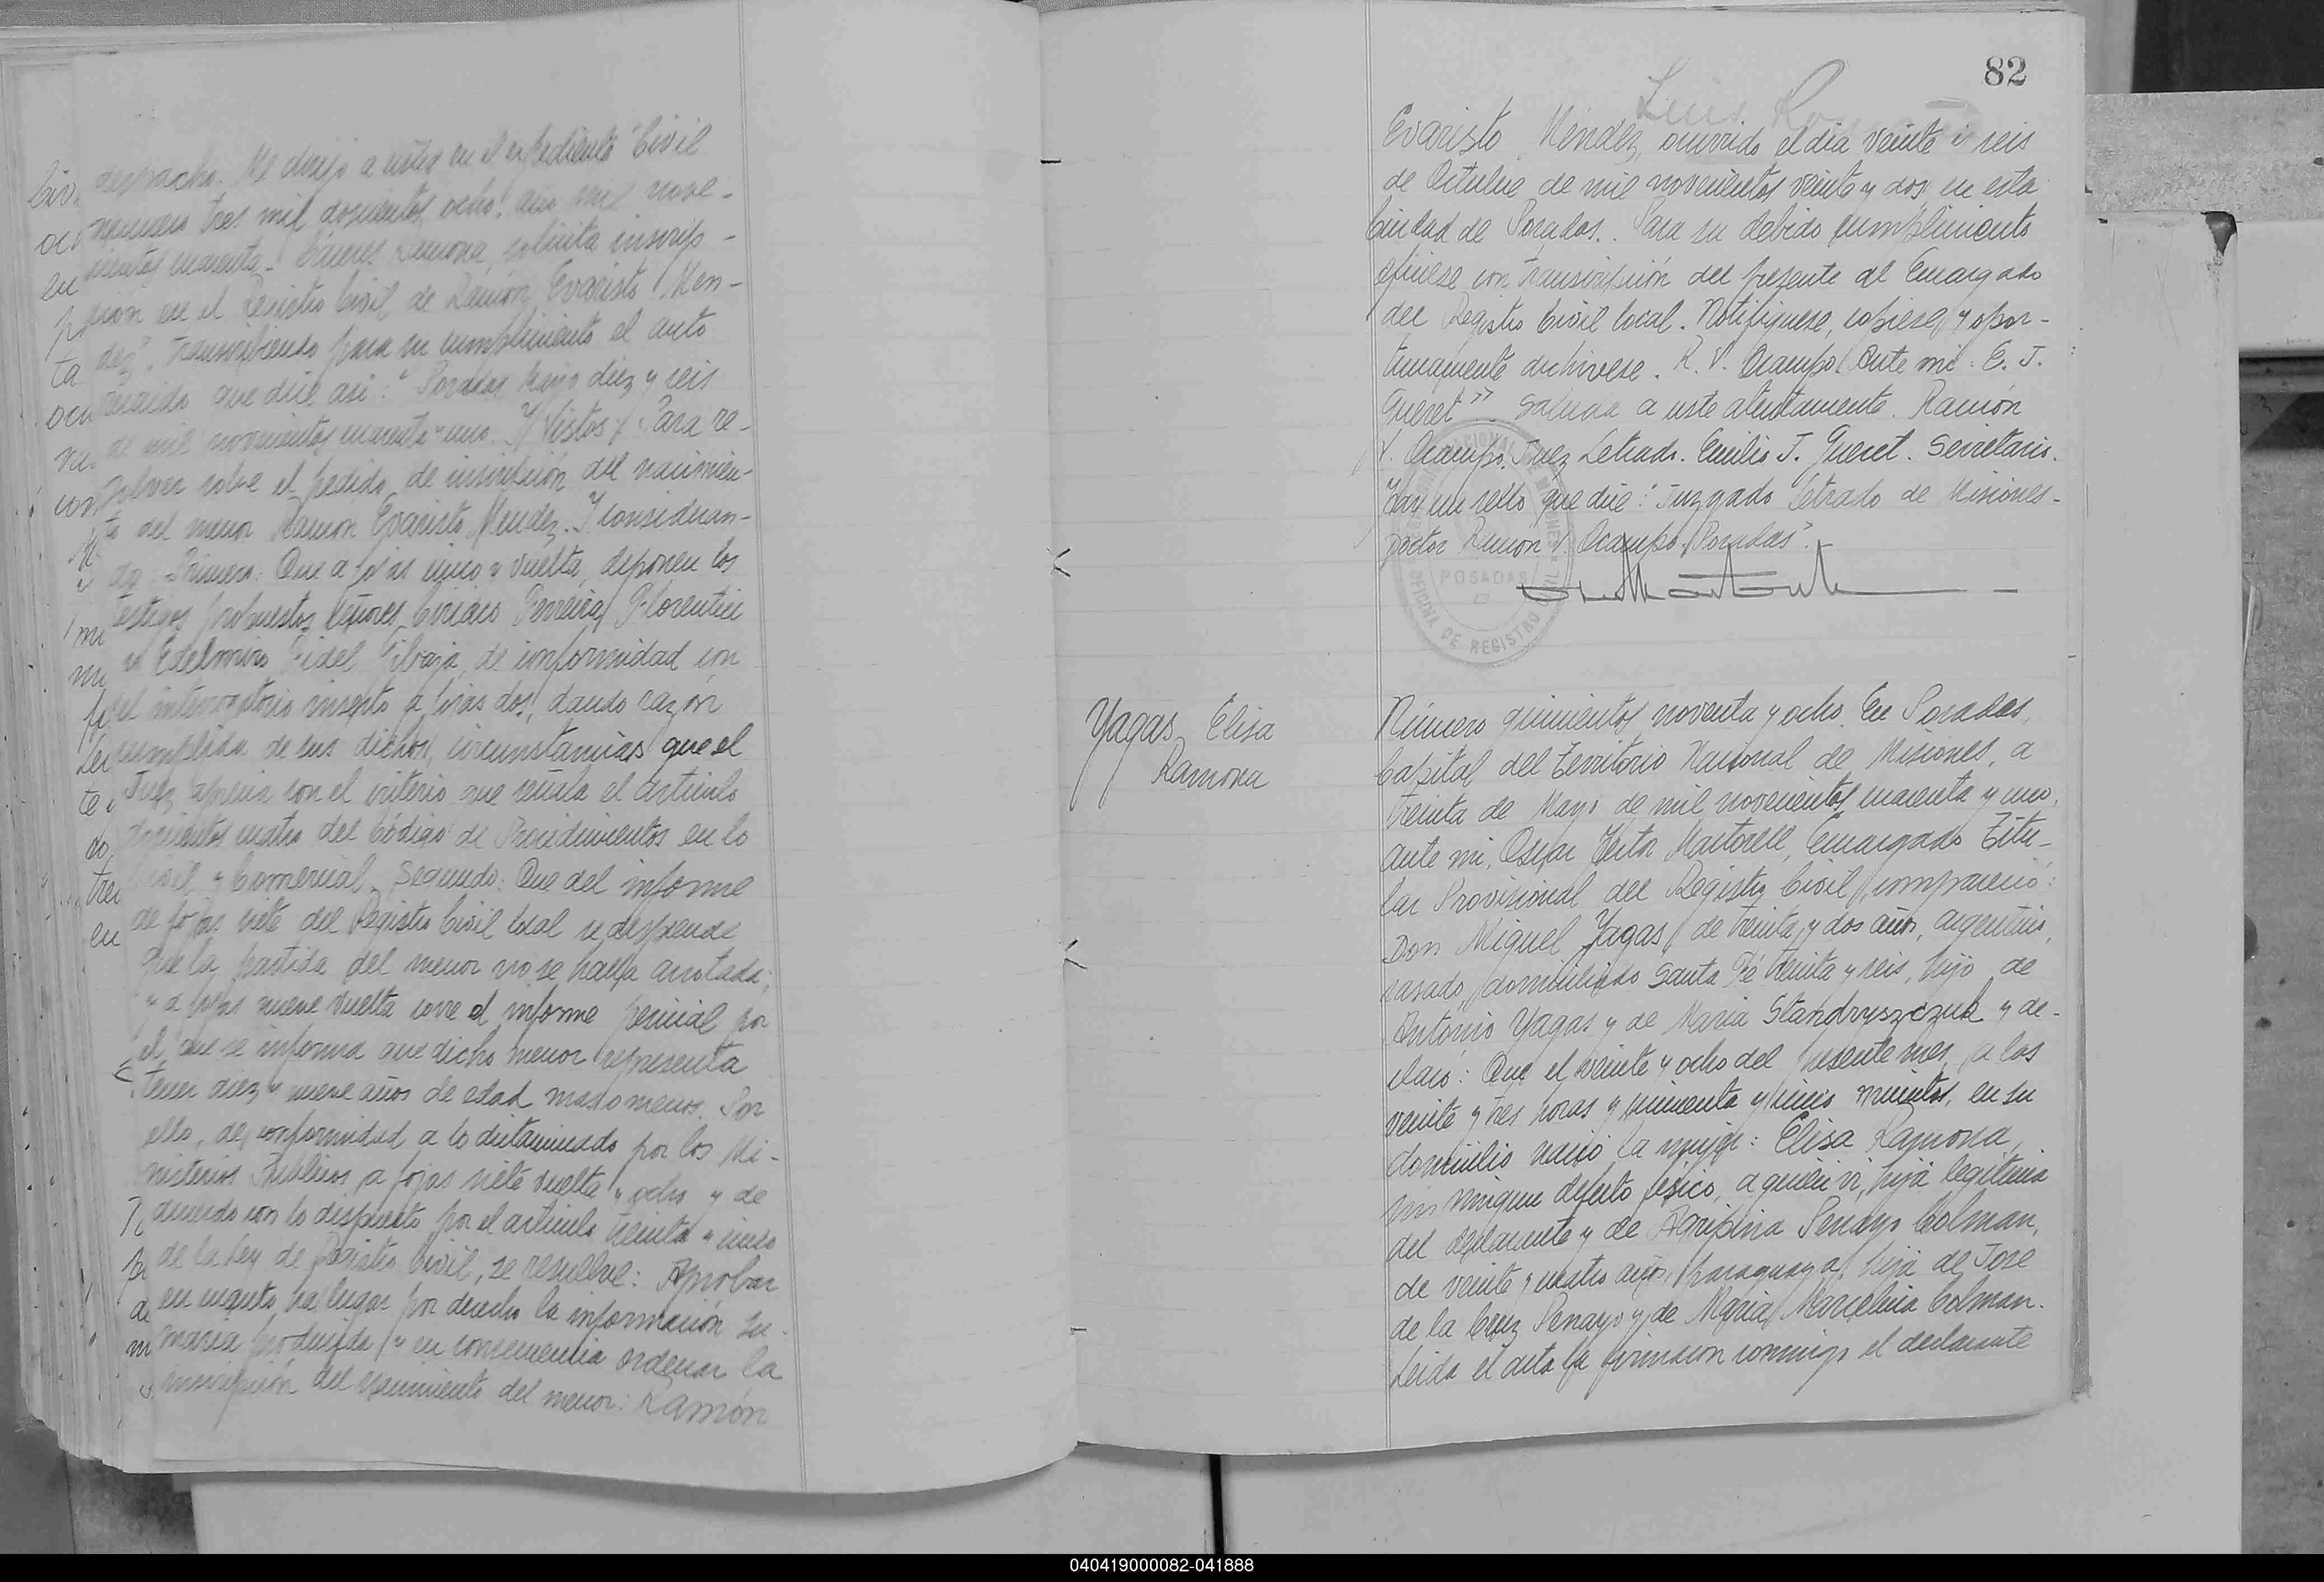 despacho. Me dirijo a usted en el expediente "Civil
número tres mil doscientos ocho, año mil nove-
cientos cuarenta. Ramona, solicita inscrip-
ción en el Registro Civil de Ramón Evaristo Men-
dez", transcribiendo para su cumplimiento el auto
recaído que dice así: "Posadas, Mayo diez y seis
de mil novecientos cuarenta y uno. Y Vistos: Para re-
solver sobre el pedido de inscripción del nacimien-
to del menor Ramón Evaristo Mendez. Y consideran-
do: Primero: Que a fojas cinco y vuelta, deponen los
testigos propuestos señores Ferreira Florentin
y Edelmiro Fidel Gibaja, de conformidad con
el interrogatorio inserto a fojas dos, dando razón
cumplida de sus dichos, circunstancias que el
Juez aprecia con el criterio que señala el artículo
doscientos cuatro del Código de Procedimientos en lo
Civil y Comercial. Segundo: Que del informe
de fojas siete del Registro Civil local se desprende
que la partida del menor no se halla anotada;
y a fojas nueve vuelta corre el informe pericial por
el que se informa que dicho menor representa
tener diez y nueve años de edad mas o menos. Por
ello, de conformidad a lo dictaminado por los Mi-
nisterios Públicos a fojas siete vuelta y ocho y de
acuerdo con lo dispuesto por el artículo treinta y cinco
de la Ley de Registro Civil, se resuelve: Aprobar
en cuanto ha lugar por derecho la información su-
maria producida y en consecuencia ordenar la
inscripción del nacimiento del menor: Ramón
82
Luis
Evaristo Mendez, ocurrido el día veinte i seis
de Octubre de mil novecientos veinte y dos, en esta
Ciudad de Posadas. Para su debido cumplimiento
ofíciese con transcripción del presente al Encargado
del Registro Civil local. Notifíquese, cópiese y opor-
tunamente archívese. R. V. Ocampo. Ante mi: E. J.
Gueret" Saluda a usted atentamente. Ramón
V. Ocampo. Juez Letrado. Emilio J. Gueret. Secretario.
Hay un sello que dice: "Juzgado Letrado de Misiones-
Doctor Ramón V. Ocampo. Posadas".
POSADAS
OFICINA DE REGISTRO CIVIL
Yagas Elisa
Ramona
Número quinientos noventa y ocho. En Posadas,
Capital del Territorio Nacional de Misiones, a
treinta de Mayo de mil novecientos cuarenta y uno,
ante mi, Oscar Hector Martorell, Encargado Titu-
lar Provisional del Registro Civil, compareció:
Don Miguel Yagas, de treinta y dos años, argentino,
casado, domiciliado Santa Fé treinta y seis, hijo de
Antonio Yagas y de Maria Standryszczuk y de-
claró: Que el veinte y ocho del presente mes, a las
veinte y tres horas y cincuenta y cinco minutos, en su
domicilio nació la mujer: Elisa Ramona,
sin ningun defecto físico, a quién vi, hija legitima
del declarante y de Agripina Penayo Colman,
de veinte y cuatro años, paraguaya, hija de José
de la Cruz Penayo y de Maria Marcelina Colman.
Leida el acta la firmaron conmigo el declarante
040419000082-041888